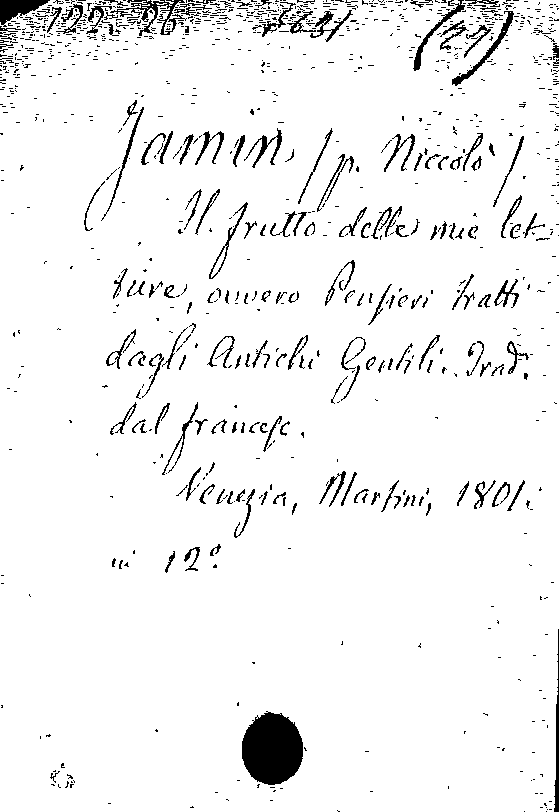 122. 26. (27)
Jamin, /p. Niccolò/.
Il frutto delle mie let=
ture, ovvero Pensieri tratti
dagli Antichi Gentili. Trad.
dal francese.
Venezia, Martini, 1801.
in 12º